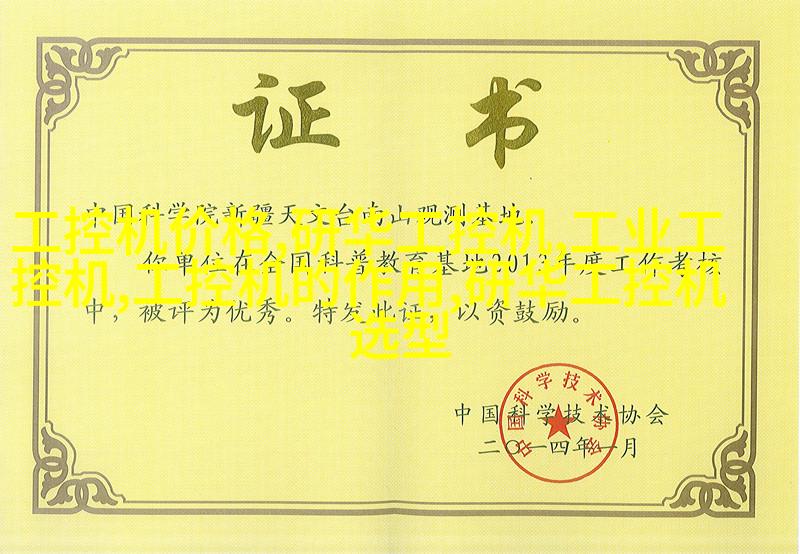 证 书
中国科学院新疆天文台南山观测基地:
工控机价格,研华工控机,工业工
你单位在全国科普教育基地2013年度工作考核
控机,工控机的作用,研华工控机
中，被评为优秀。特发此证，以资鼓励。
选型
中国科学技术协会
二〇一四年一月
中国科学技术协会